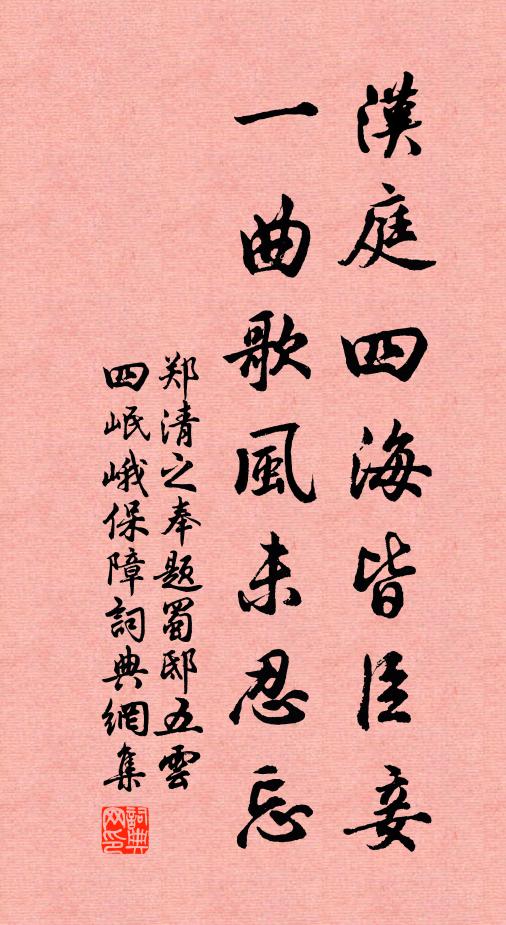 漢庭四海皆臣妾
一曲歌風未忍忘
郑清之奉题蜀邸五雲
四岷峨保障詞典網集
詞典网印